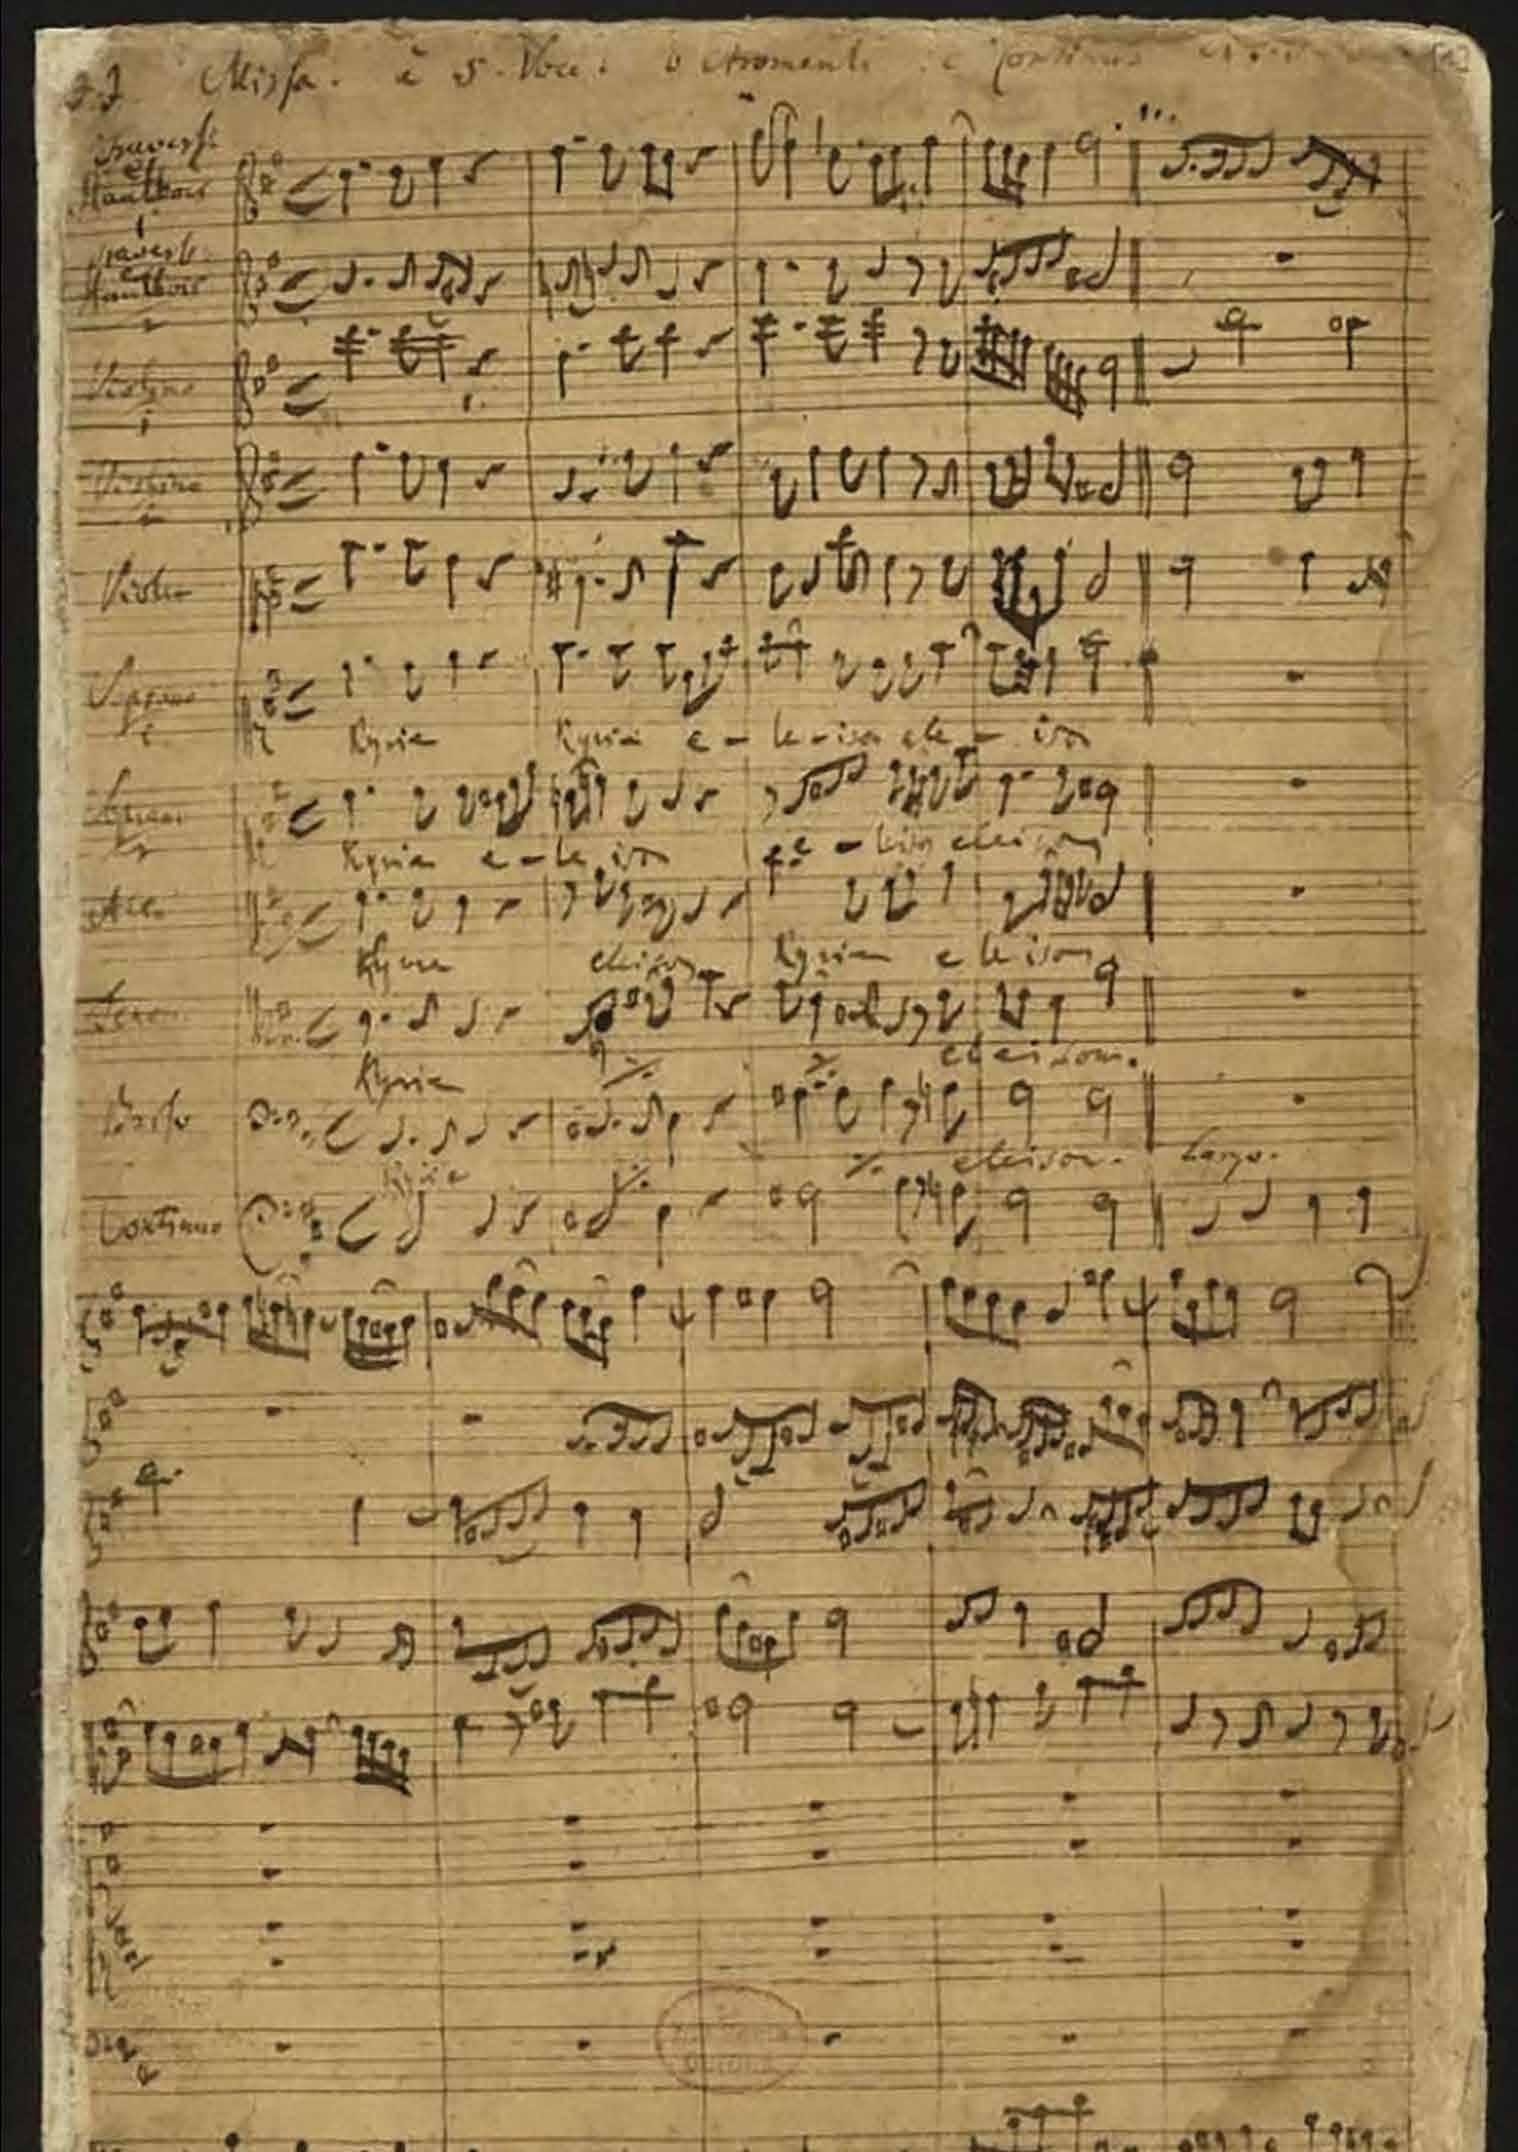 J.J. Missa. à 5. Voci. e
Traversi
et
Hautbois
1
Travers.
et
Hautbois
2
Violino
1
Violino
2
Viola
Soprano
1
Kyrie Kyrie e - le - ison ele - ison
Soprano
2
Kyrie e - le ison e - leison eleison
Alto
Kyrie eleison Kyrie e leison
Tenor
Kyrie ·/. ·/. eleison.
Basso
Kyrie ·/. ·/. eleison. Largo.
Continuo